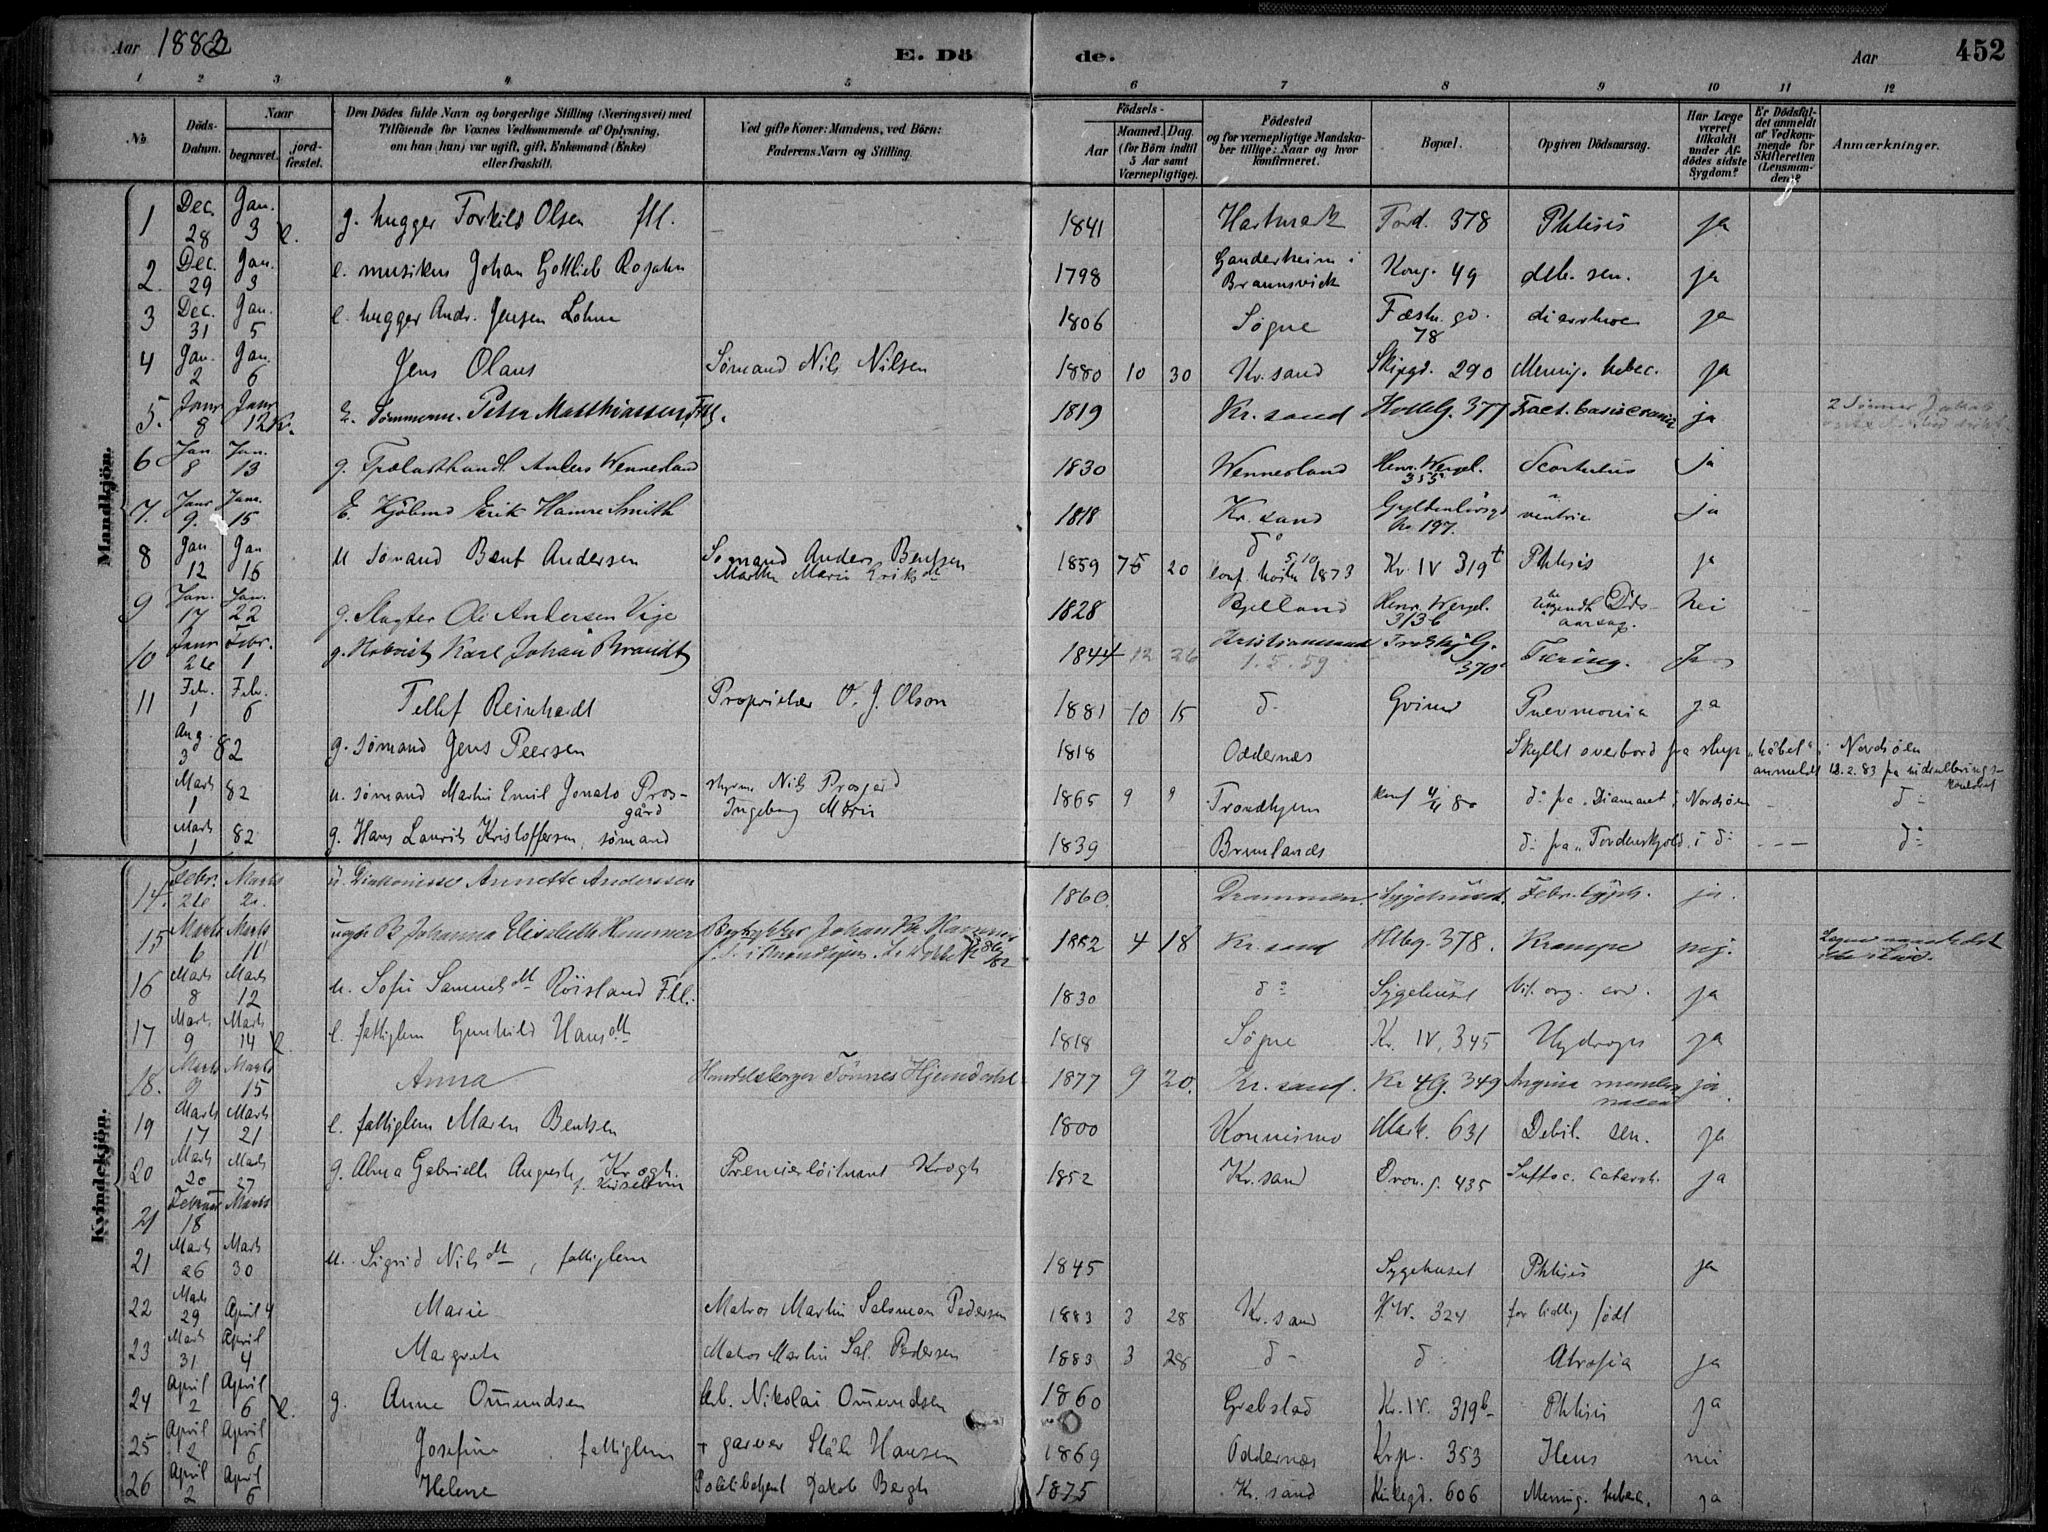 Aar 1883 E. Dö
de. Aar 452
1 2 3 4 5 6 7 8 9 10 11 12
№ Döds-Datum. Naar begravet. jordfæstet. Den Dödes fulde Navn og borgerlige Stilling (Næringsvei) med Tilföiende for Voxnes Vedkommende af Oplysning, om han (hun) var ugift, gift, Enkemand (Enke) eller fraskilt. Ved gifte Koner: Mandens, ved Börn: Faderens Navn og Stilling. Födsels- Aar Maaned. Dag. (for Börn indtil 5 Aar samt Værnepligtige). Födested og for værnepligtige Mandskaber tillige: Naar og hvor konfirmeret. Bopæl. Opgiven Dödsaarsag. Har Læge været tilkaldt under Afdödes sidste Sygdom? Er Dödsfaldet anmeldt af Vedkommende for Skifteretten (Lensmanden)? Anmærkninger.
Mandkjön.
1 Dec. 28 Jan. 3 g. hugger Torkild Olsen fll. 1841 Hartmark Tord. 378 Phtisis ja
2 Dec. 29 Jan. 3 e. musikus Johan Gottlieb Rosahn 1798 Ganderheim i Braunsvick Kong. 49 deb. sen. ja
3 Dec. 31 Jan. 5 e. hugger Andr. Jensen Lohne 1806 Søgne Fæstn. gd. 78 diarrhoe ja
4 Jan. 2 Jan. 6 Jens Olaus Sømand Nils Nilsen 1880 10 30 Kr.sand Skipgd. 290 Mening. tuberc. ja
5. Janr 8 Janr 12 E. Tømmerm. Peter Matthiassen, Fll. 1819 Kr.sand Holbg. 377 Fract. basis cranii ja 2 Sønner
6 Jan 8 Jan. 13 g. Trælasthandl. Anders Wennesland 1830 Wennesland Henr. Wergel. 355 Scorbutus ja
7. Janr 9. Janr. 15 E. Kjøbmd Erik Hamre Smith 1818 Kr.sand Gyldenløvsgd No 197. ja
8 Jan 12 Jan 16 U Sømand Bent Andersen Sømand Anders Bentsen Marthe Marie Eriksdtr 1859 20 do Conf. høsten 5/10 1873 Kr. IV 319 Phtisis ja
9 Jan. 17 Jan. 22 g. Slagter Ole Andersen Vige 1828 Bjelland Henr. Wergel. 313b Dødsaarsag. Nei
10 Janr 26 Febr. 1 g. Karl Johan Brandt 1844 12 26 Kristiansund 1.5.59 370 Tæring. Ja
11 Feb. 1 Feb. 6 Tellef Reinhardt Proprietær O. J. Olson 1881 10 15 do Grim Pnevmonia ja
Aug. 3 82 g. sømand Jens Peersen 1818 Oddernæs Skyllet overbord fra skip "Håbet" i Nordsøen anmeldt 12.2.83 fra
Marts 1 82 u. sømand Martin Emil Jonato Prosgård styrm. Nils Prosgård Ingeborg Marie 1865 9 9 Trondhjem konf 80 do fra "Diamant" i Nordsøen do
Marts 1 82 g. Hans Laurits Kristoffersen, sømand 1839 Brunlands do fra "Tordenskjold" i do do
Kvindekjön.
14. Febr. 26 Marts 2. u. Diakonisse Annette Anderssen 1860. Drammen. Sygehuset. Febr. typh. ja.
15 Marts 6 Marts 11 Johanna Elisabeth Hammer Bogtrykker Johan Hammer 1882 4 18 Kr.sand Hlbg. 378. Krampe nej.
16 Marts 8 Marts 12 u. Sofie Samuelsdtr Röisland Fll. 1830 do Sygehuset Vit. org. cord. ja
17 Marts 9 Marts 14 e. fattiglem Gunhild Hansdtr 1818 Søgne Kr. IV, 345 Hydrops ja
18. Marts 9 Marts 15 Anna Handelsborger Tönnes Hjemdahl 1877 9 20. Kr.sand. Kr 4 G. 349 Angina membranacea ja.
19 Marts 17 Marts 21 e. fattiglem Maren Bentsen 1800 Konnismo Mark. 631 Debil. sen. ja
20 Marts 20 Marts 27 g. Alma Gabrielle Auguste Krogh. Premierløitnant Krogh 1852 Kr.sand Dron. g. 435 Suffoc. catarrh. ja
21 Februar 18 Marts
21 Marts 26 Marts 30 u. Sigrid Nilsdtr, fattiglem 1845 Sygehuset Phtisis ja
22 Marts 29 April 4 Marie Matros Martin Salomon Pedersen 1883 3 28 Kr.sand Kr IV. 324 for tidlig født
23 Marts 31 April 4 Margrete Matros Martin Sal. Pedersen 1883 3 28 do do Atrofia ja
24 April 2 April 6 g. Anne Omundsen Arb. Nikolai Omundsen 1860 Grebstad Kr. IV. 319b Phtisis ja
25 April 2 April 6 Josefine, fattiglem + garver Ståle Hansen 1869 Oddernæs Krp. 353 Ileus nei
26 April 2 April 6 Helene Politibetjent Jakob Bergh 1875 Kr.sand Kirkegd. 606 Mening. tuberc. ja